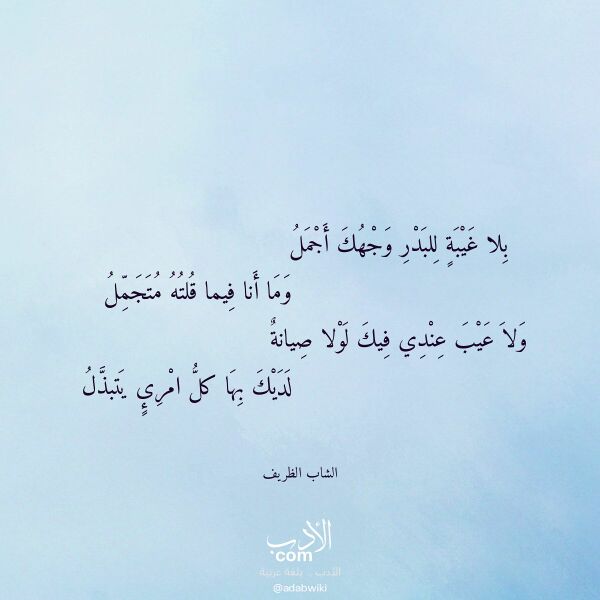 بِلا غَيْبَةٍ لِلبَدْرِ وَجْهُكَ أَجْمَلُ
وَمَا أَنا فِيما قُلتُهُ مُتَجَمِّلُ
وَلاَ عَيْبَ عِنْدِي فِيكَ لَوْلا صِيانةٌ
لَدَيْكَ بِهَا كلُّ امْرِيٍ يَتبذَّلُ
الشاب الظريف
الأدب
com
الأدب .. بلغة عربية
@adabwiki